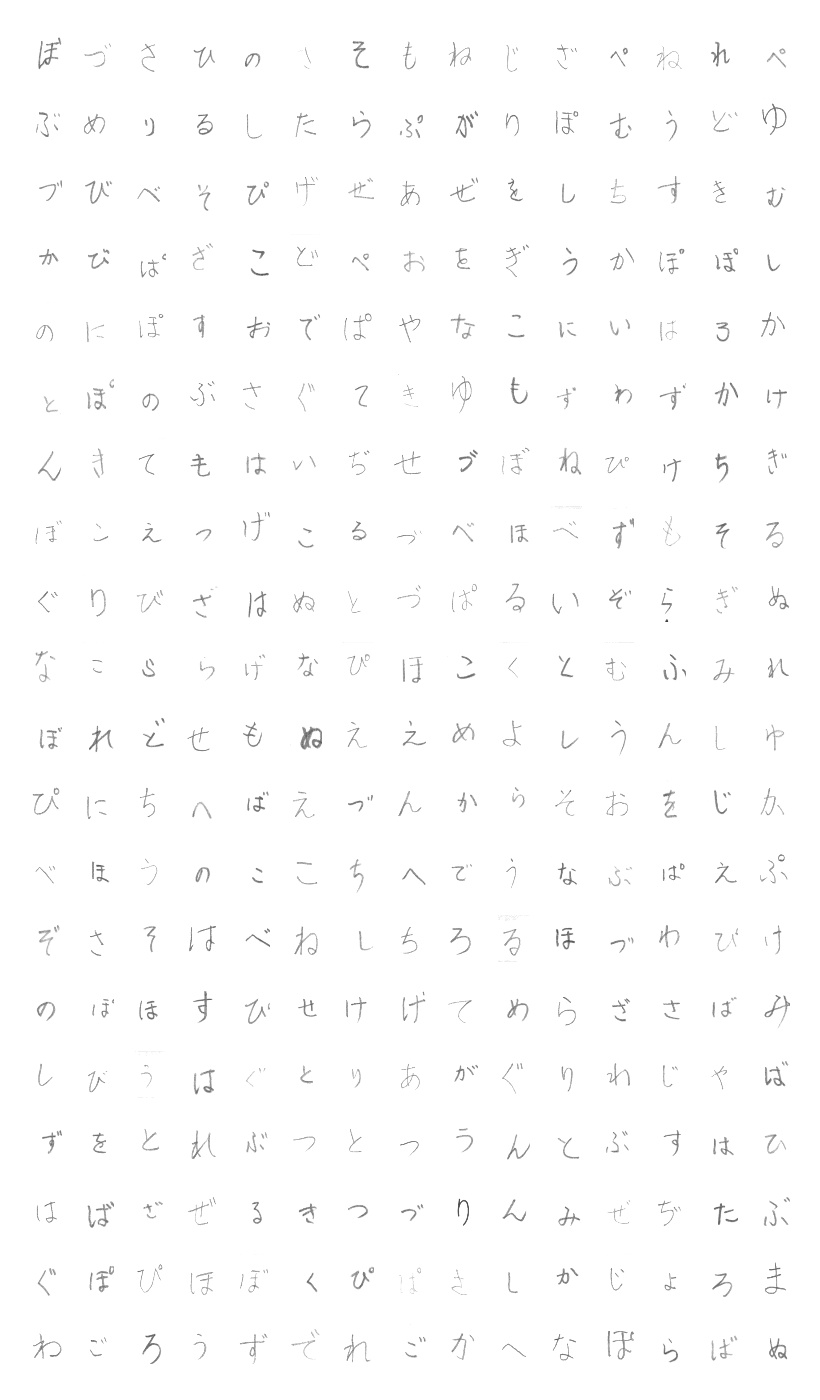 ぼづさひのさそもねじざぺねれぺ
ぶめりるしたらぷがりぽむうどゆ
づびべそぴげぜあぜをしちすきむ
かびぱざこどぺおをぎうかぽぽし
のにぽすおでぱやなこにいはろか
とぽのぶさぐてきゆもずわずかけ
んきてもはいぢせづぼねぴけちぎ
ぼこえつげこるづべほべずもそる
ぐりびざはぬとづぱるいぞらぎぬ
なこららげなぴほこくとむふみれ
ぼれどせもぬええめよしうんしゆ
ぴにちへばえづんからそおをじか
べほうのここちへでうなぶぱえぷ
ぞさそはべねしちろるほづわぴけ
のぼほすびせけげてめらざさばみ
しびうはぐとりあがぐりわじやば
ずをとれぶつとつうんとぶすはひ
はばざぜるきつづりんみぜぢたぶ
ぐぽぴほぼくぴぱさしかじょろま
わごろうずでれごかへなぽらばぬ